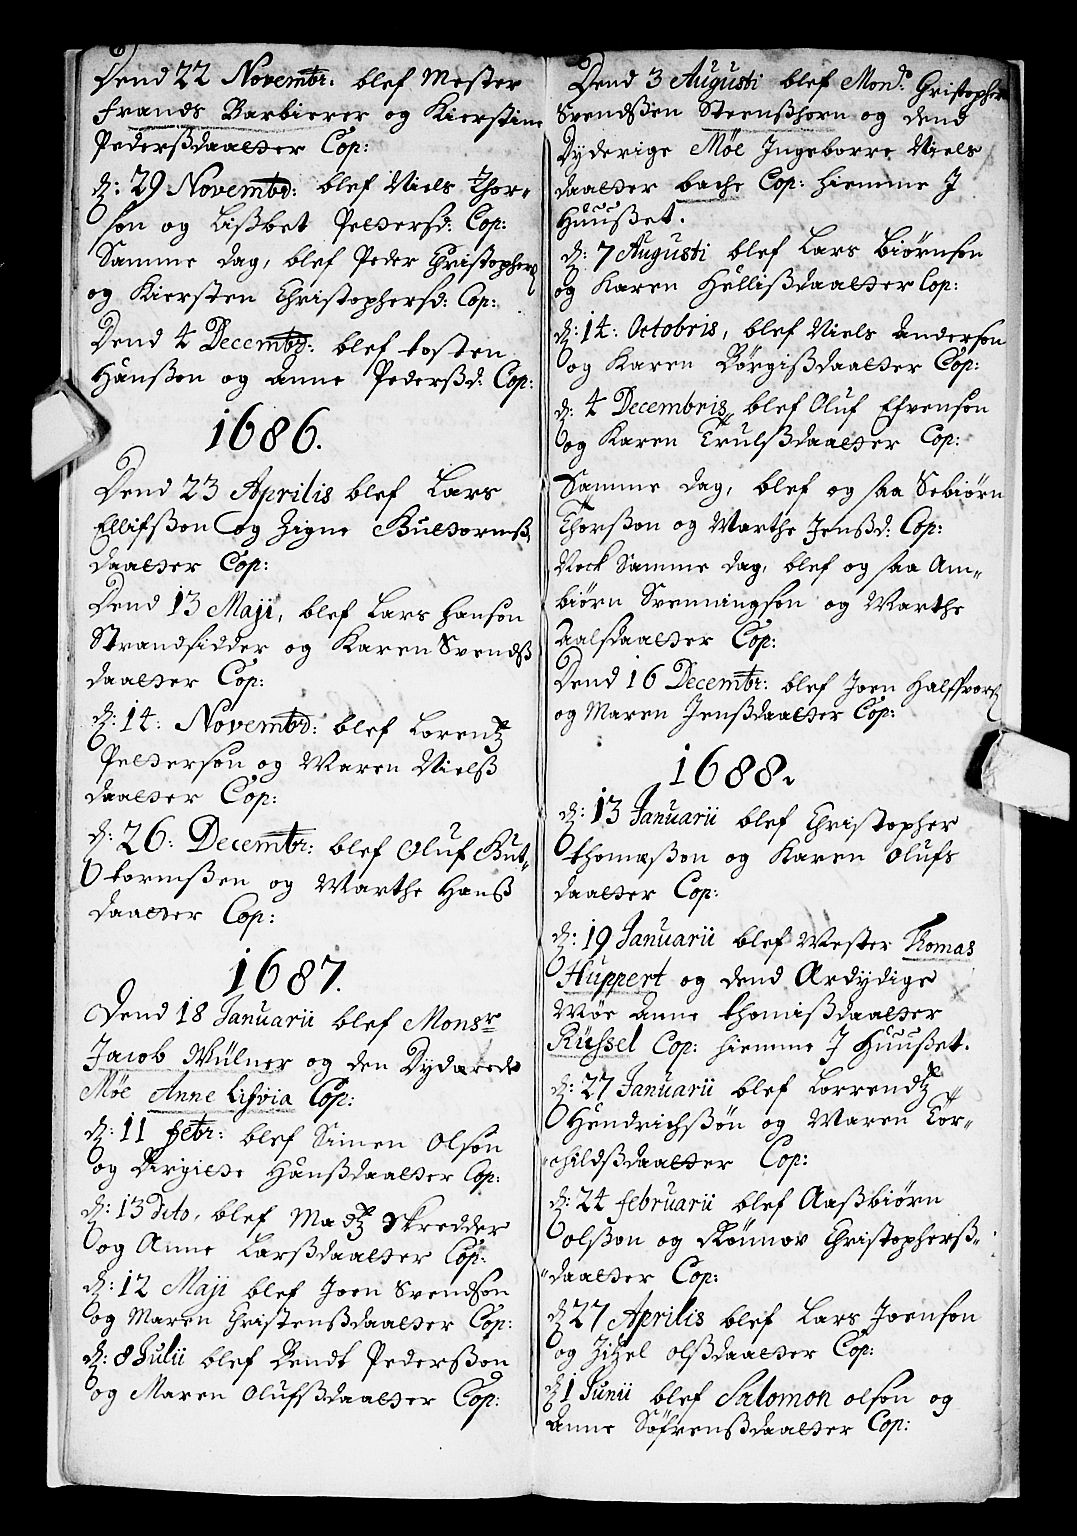 6)
Dend 22 Novembr: blef Mester
Frands Barbierer og Kierstine
Pederßdaatter Cop:
d: 29 Novembr: blef Niels Thor-
son og Lißbet Pettersd: Cop:
Samme dag, blef Peder Christophers
og Kiersten Christophersd: Cop:
Dend 4 Decembr: blef tosten
Hanßon og Anne Pederßd: Cop:
1686.
Dend 23 Aprilis blef Lars
Ellifßon og Zigne Buttormß
daatter Cop:
Dend 13 Maji, blef Lars Hanson
Strandsidder og Karen Svendß
daatter Cop:
d: 14: Novembr: blef Lorentz
Petterson og Maren Nielß
daatter Cop:
d: 26: Decembr: blef Oluf But-
tormßen og Marthe Hanß
daatter Cop:
1687.
Dend 18 Januarii blef Monsr
Jacob Mülner og den Dydærede
Møe Anne Lifvia Cop:
d: 11 febr: blef Simen Olson
og Birgitte Hanßdaatter Cop:
d: 13 Dito, blef Madtz Skredder
og Anne Larßdaatter Cop:
d: 12 Maji blef Joen Svendson
og Maren Christenßdaatter Cop:
d: 8 Julii blef Bendt Pederßon
og Maren Olufßdaatter Cop:
Dend 3 Augusti blef Monr. Christopher
Svendßen Steenßhorn og dend
Dyderige Møe Ingeborre Niels
daatter bache Cop: hiemme J
Huußet.
d: 7 Augusti blef Lars Biørnson
og Karen Hellißdaatter Cop:
d: 14: Octobris, blef Niels Anderson
og Karen Børgißdaatter Cop:
d: 4 Decembris, blef Oluf Efvenson
og Karen Trulßdaatter Cop:
Samme dag, blef og saa Sebiørn
Thorßon og Marthe Jenßd: Cop:
Nock Samme dag, blef og saa Am-
biørn Svenningson og Marthe
Aalsdaatter Cop:
Dend 16 Decembr: blef Joen Halffvors
og Maren Jenßdaatter Cop:
1688.
d: 13 Januarii blef Christopher
thomæßon og Karen Olufs
daatter Cop:
d: 19 Januarii blef Mester Thomas
Huppert og dend Ærdydige
Møe Anne thomißdaatter
Rüssel Cop: hiemme J Huußet.
d: 27 Januarii blef Lorrendtz
Hendrichßøn og Maren Tor-
childßdaatter Cop:
d: 24 februarii blef Aaßbiørn
olßon og Rønnov Christopherß-
daatter Cop:
d 27 Aprilis blef Lars Joenson
og Zitzel olßdaatter Cop:
d 1 Junii blef Salomon olson og
Anne Søfrenßdaatter Cop: